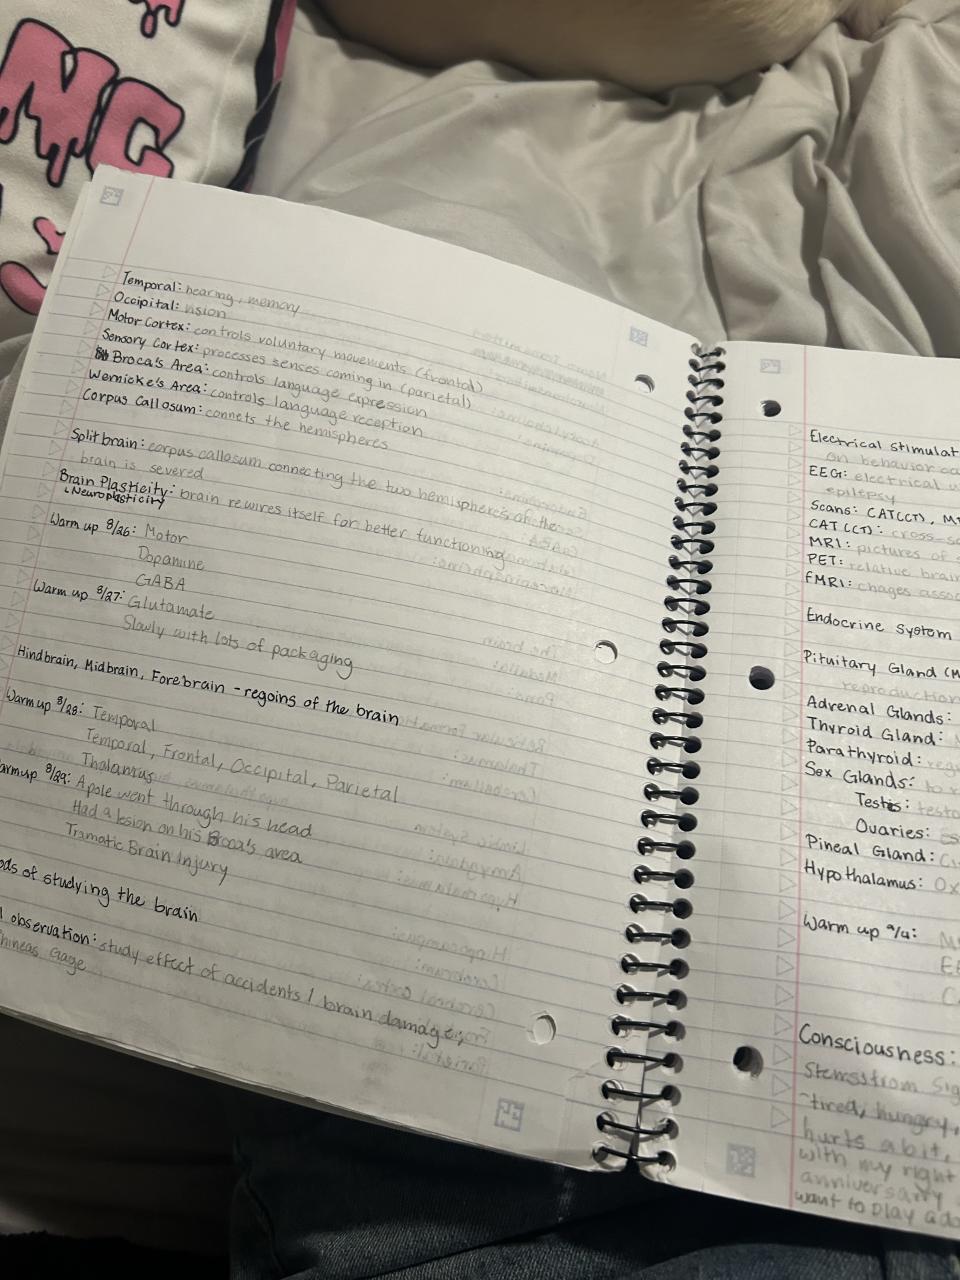 NG
Temporal: hearing, memory
Occipital: vision
Motor Cortex: controls voluntary movements (frontal)
Sensory Cortex: processes senses coming in (parietal)
Broca's Area: controls language expression
Wernicke's Area: controls language reception
Corpus Callosum: connets the hemispheres
Split brain: corpus callosum connecting the two hemispheres of the
brain is severed
Brain Plasticity: brain rewires itself for better functioning
Neuroplasticity
Warm up 8/26: Motor
Dopamine
GABA
Warm up 8/27: Glutamate
Slowly with lots of packaging
Hindbrain, Midbrain, Forebrain - regoins of the brain
Warm up 8/28: Temporal
Temporal, Frontal, Occipital, Parietal
Thalamus
armup 8/29: A pole went through his head
Had a lesion on his Broca's area
Tramatic Brain Injury
ods of studying the brain
l observation: study effect of accidents / brain damage;
hineas Gage
Electrical stimulat
on behavior ca
EEG: electrical
epilepsy
Scans: CAT(CT),
CAT (CT): cross-s
MRI: pictures of
PET: relative brain
fMRI: chages asso
Endocrine System
Pituitary Gland
reproduction
Adrenal Glands:
Thyroid Gland:
Parathyroid: reg
Sex Glands: to
Testis: testo
Ovaries:
Pineal Gland:
Hypothalamus: Ox
Warm up 9/4:
Consciousness:
Sig
tired, hungry,
hurts a bit,
with my right
anniversary
want to play a